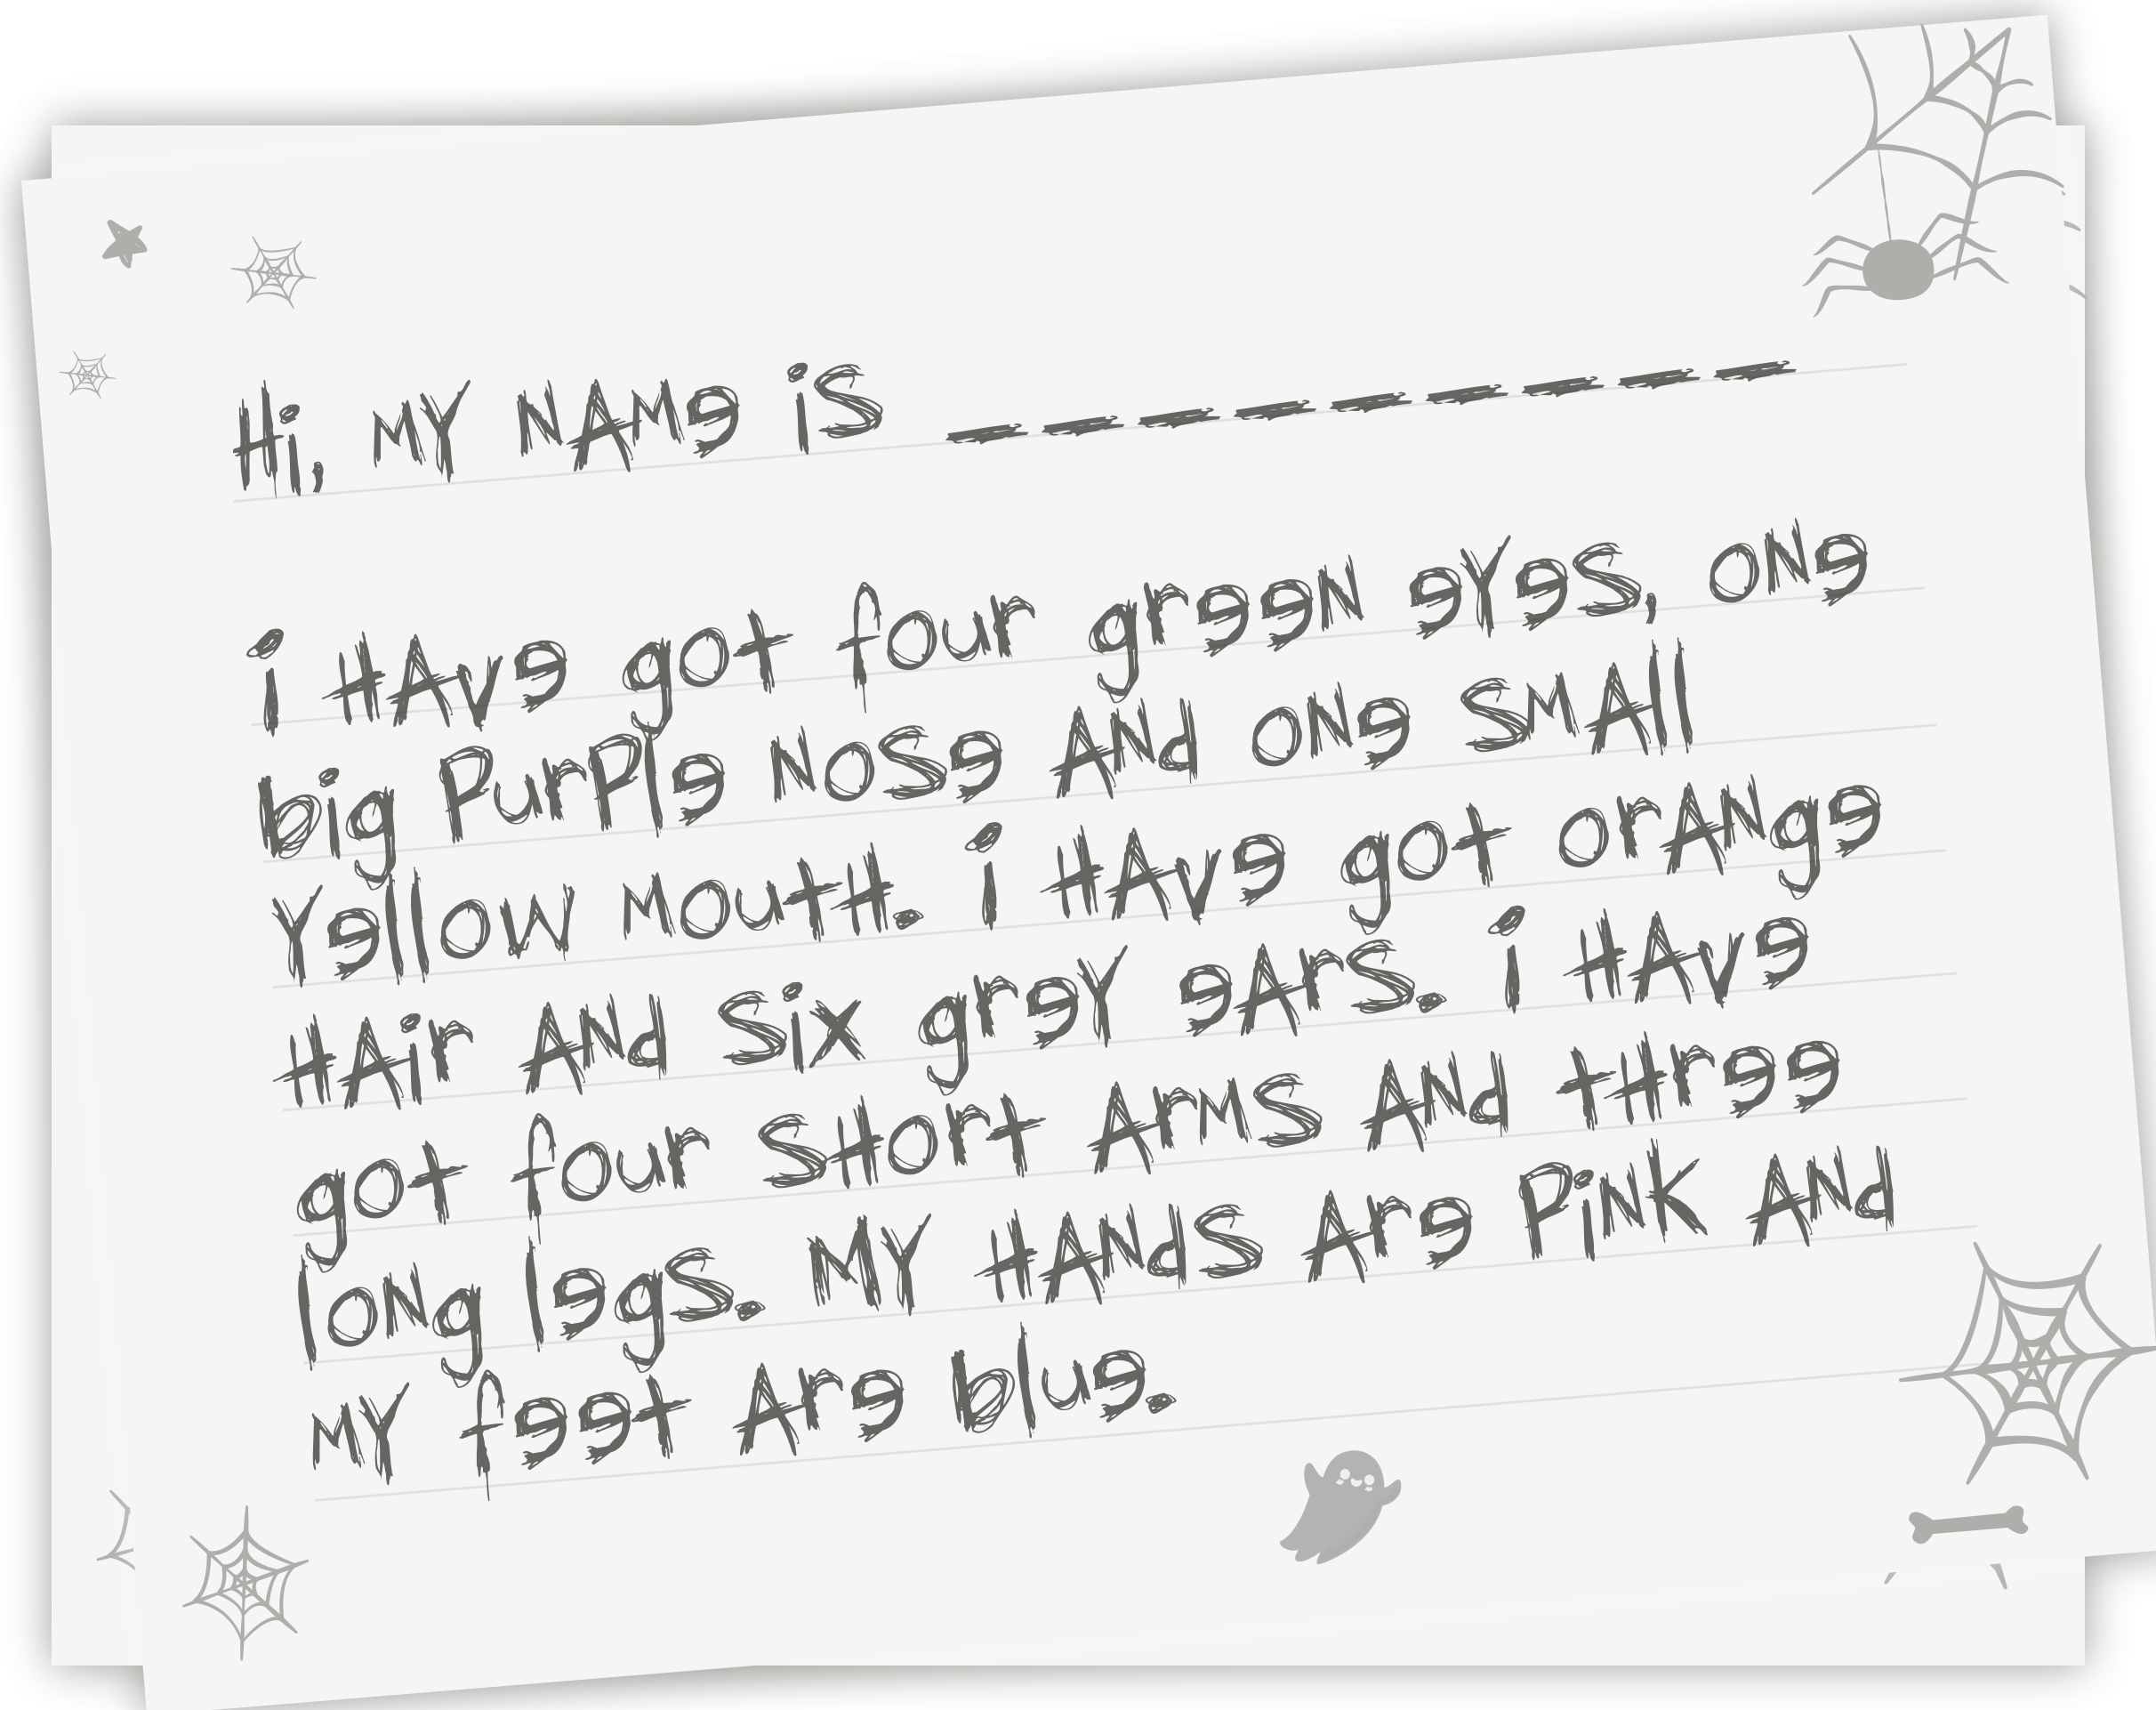 Hi, MY NAMe is _ _ _ _ _ _ _ _ _
i HAve got four greeN eYes, oNe
big PurPle Nose ANd oNe sMAll
Yellow MoutH. i HAve got orANge
HAir ANd six greY eArs. i HAve
got four sHort ArMs ANd tHree
loNg legs. MY HANds Are PiNK ANd
MY feet Are blue.